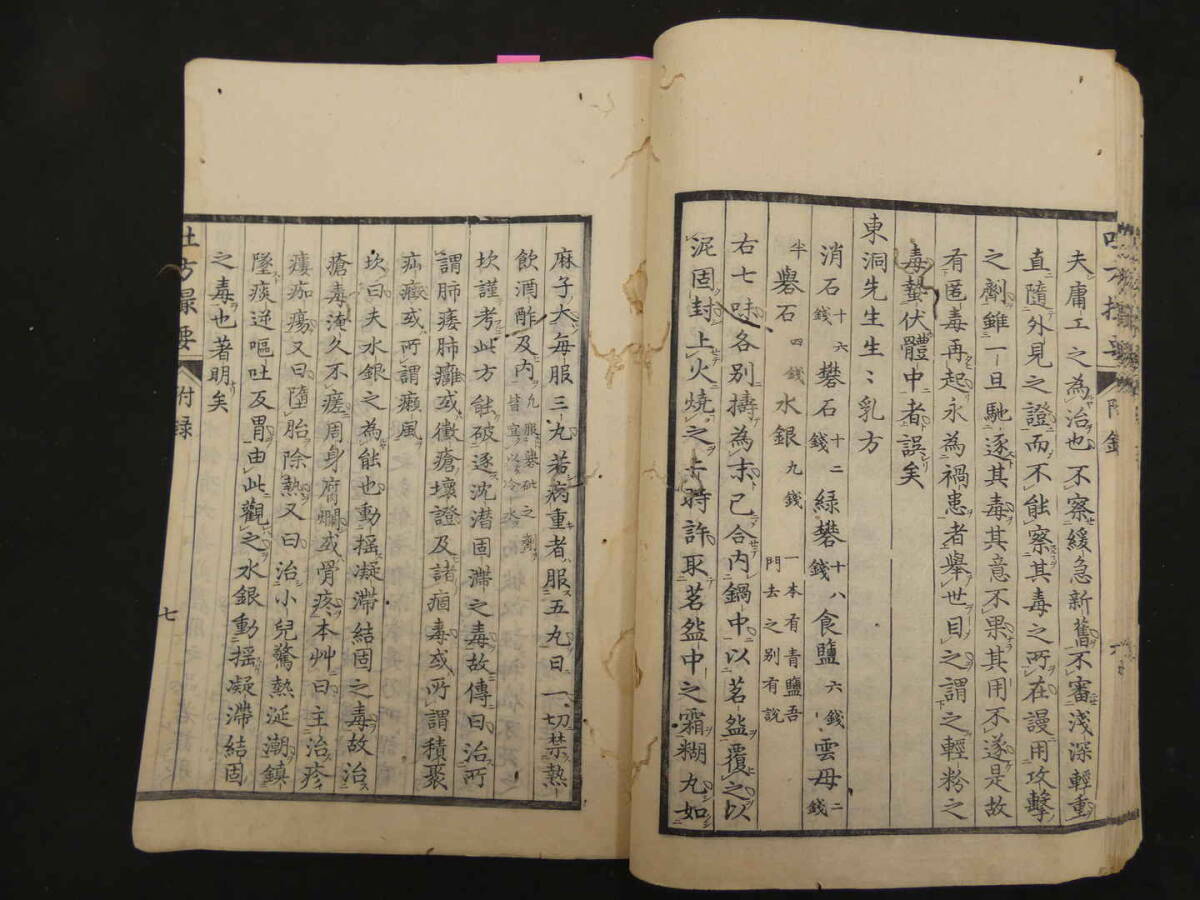 夫庸工之為治也不察緩急新舊不審淺深輕重
直隨外見之證而不能察其毒之所在謾用攻擊
之劑雖一旦馳逐其毒其意不果其用不遂是故
有匿毒再起永為禍患者舉世目之謂之輕粉之
毒蟄伏體中者誤矣
東洞先生生々乳方
消石十六錢 礬石十二錢 綠礬十八錢 食鹽六錢 雲母二錢
半 礜石四錢 水銀九錢 一本有青鹽吾門去之別有說
右七味各別擣為末已合內鍋中以茗盌覆之以
泥固封上火燒之十時許取茗盌中之霜糊丸如
麻子大每服三丸若病重者服五丸日一切禁熱
飲酒酢及肉凡服礜砒之劑皆宜以冷水
坎謹考此方能破逐沈潜固滯之毒故傳曰治所
謂肺痿肺癰或黴瘡壞證及諸痼毒或所謂積聚
疝癥或所謂癩風
坎曰夫水銀之為能也動搖凝滯結固之毒故治
瘡毒淹久不瘥周身腐爛或骨疼本艸曰主治疹
瘻痂瘍又曰墮胎除熱又曰治小兒驚熱涎潮鎮
墜痰逆嘔吐反胃由此觀之水銀動搖凝滯結固
之毒也著明矣
吐方撮要 附録 七